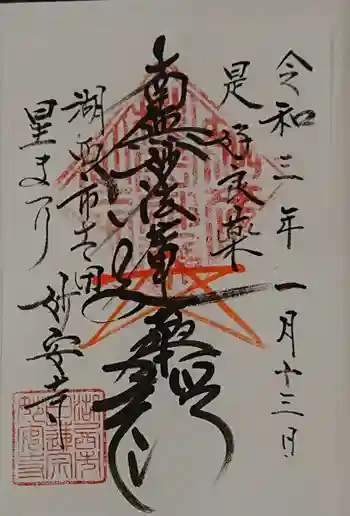 令和三年一月十三日
是好良薬
南無妙法蓮華経
湖西市太田
星まつり
妙安寺